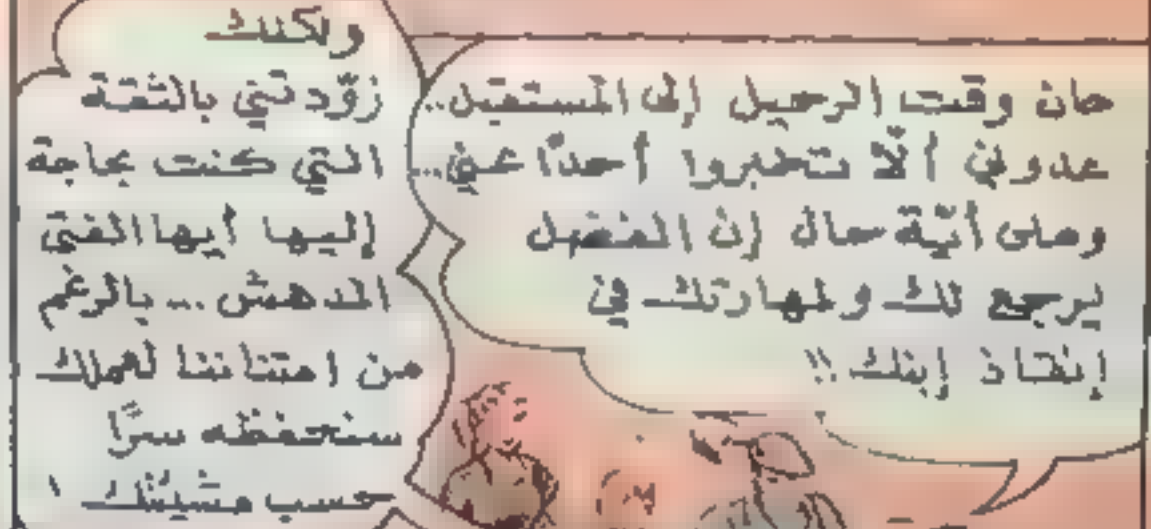 حان وقت الرحيل إلى المستقبل..
عدوني ألّا تخبروا أحدًا عني...
وعلى أيّة حال إن الفضل
يرجع لك ولمهارتك في
إنقاذ إبنك !!
ولكنك
زوّدتني بالثقة
التي كنت بحاجة
إليها أيها الفتى
المدهش ... بالرغم
من امتناننا لعملك
سنحفظه سرًّا
حسب مشيئتك !